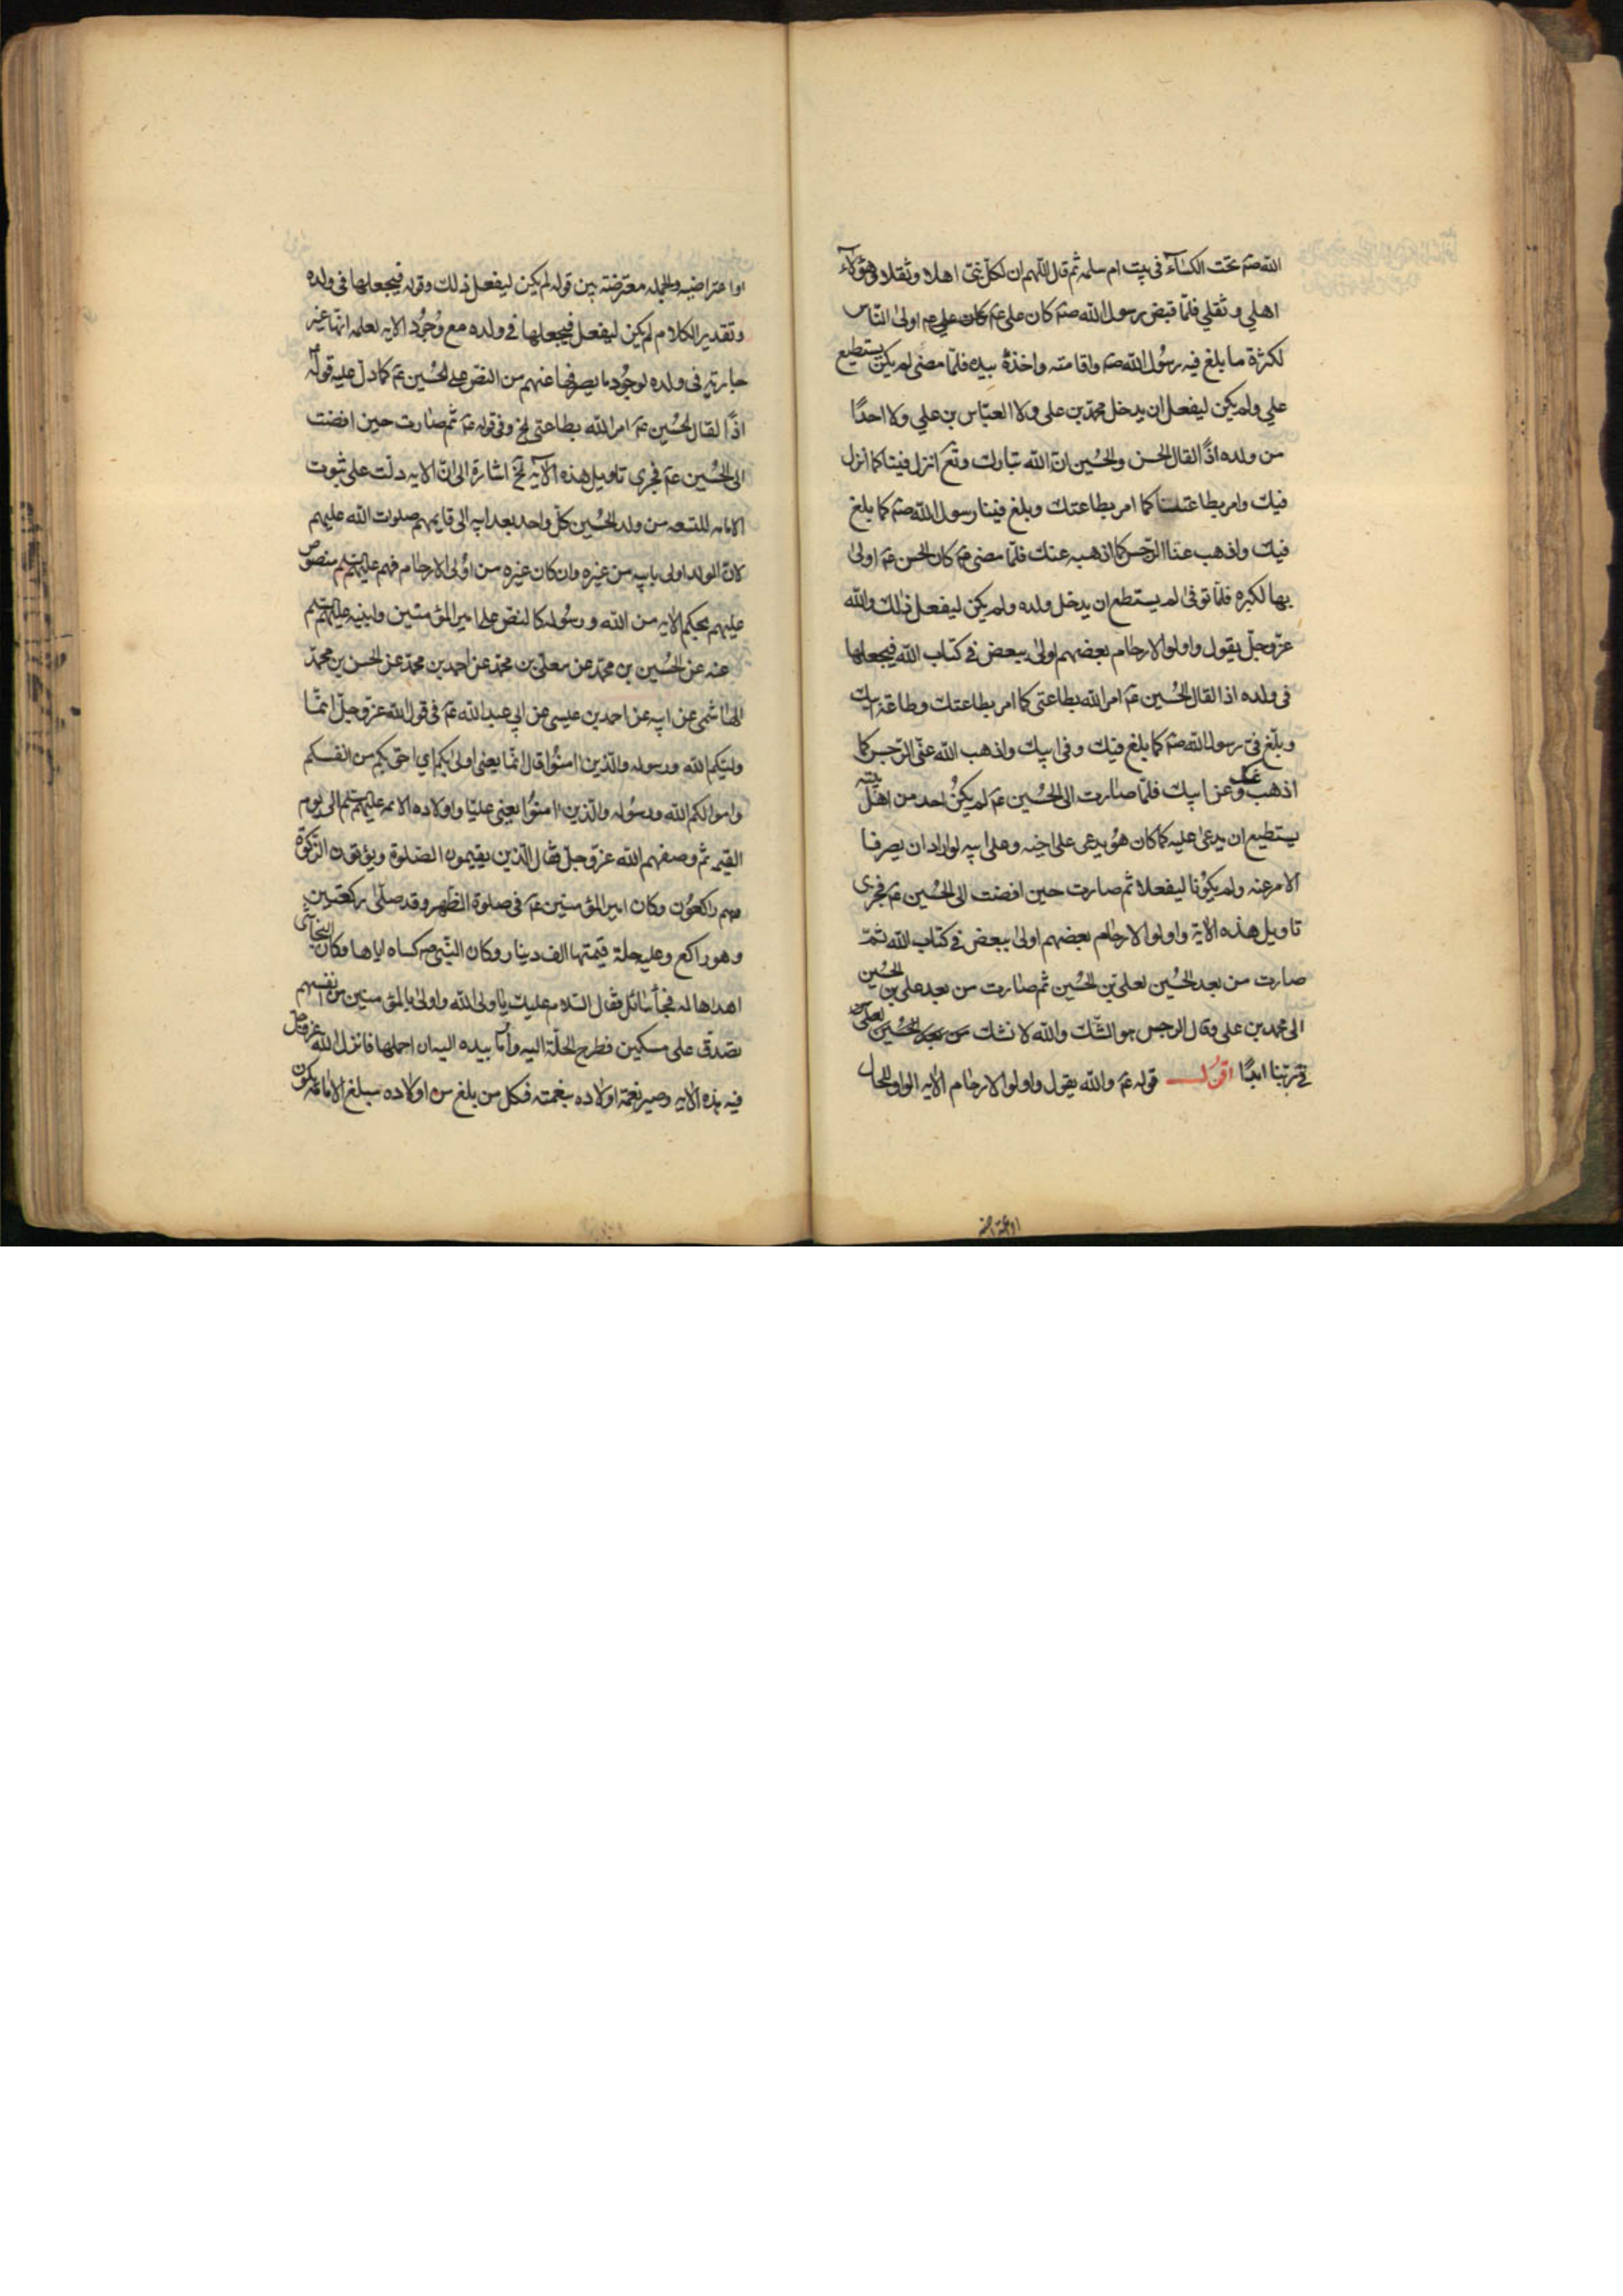 الله صم تحت الكسآء فى بيت ام سلمه ثم قال اللهم ان لكل نبى اهلا وثقلا وهؤلاء
اهلي وثقلي فلمّا قبض رسول الله صم كان على عم كان علي عم اولى النّاس
لكثرة ما بلغ فيه رسُول الله صم واقامته واخذهُ بيده فلمّا مضى لم يكن يستطيع
علي ولم يكن ليفعل ان يدخل محمّد بن على ولا العبّاس بن علي ولا احدًا
من ولده اذًا لقال الحسن والحُسين انّ الله تبارك وتع انزل فينا كما انزل
فيك وامر بطاعتنا كما امر بطاعتك وبلغ فينا رسول الله صم كما بلغ
فيك واذهب عنّا الرّجس كما اذهبه عنك فلمّا مضى عم كان الحسن عم اولى
بها لكبره فلمّا توفى لم يستطع ان يدخل ولده ولم يكن ليفعل ذلك والله
عزّ وجلّ يقول واولوا الارحام بعضهم اولى ببعض فى كتاب الله فيجعلها
فى ولده اذا لقال الحُسين عم امر الله بطاعتى كما امر بطاعتك وطاعة ابيك
وبلّغ فىّ رسول الله صم كما بلغ فيك وفى ابيك واذهب الله عنّى الرّجس كما
اذهب عنك وعن ابيك فلمّا صارت الى الحُسين عم لم يكنُ احد من اهل بيته
يستطيع ان يدعى عليه كما كان هُو يدعى على اخيه وعلى ابيه لو ارادا ان يصرفا
الامر عنه ولم يكُونا ليفعلا ثم صارت حين افضت الى الحُسين عم فجرى
تاويل هذه الاية واولوا الارحام بعضهم اولى ببعض فى كتاب الله ثمّ
صارت من بعد الحُسين لعلى بن الحُسين ثم صارت من بعد على بن الحُسين
الى محمد بن على وقال الرجس هو الشّك والله لا نشك
فى ربّنا ابدًا اقول قوله عم والله يقول واولوا الارحام الايه الواو للحال
او اعتراضيه والجمله معترضة بين قوله لم يكن ليفعل ذلك وقوله فيجعلها فى ولده
وتقدير الكلام لم يكن ليفعل فيجعلها فى ولده مع وُجُود الايه لعلمه انّها غير
جارية فى ولده لوجُود ما يصرفها عنهم من النصّ على الحُسين عم كما دلّ عليه قوله
اذًا لقال الحُسين عم امر الله بطاعتى الخ وفى قوله عم ثم صارت حين افضت
الى الحُسين عم فجرى تاويل هذه الآيه الخ اشارة الى انّ الايه دلّت على ثبوت
الامامه للتسعه من ولد الحُسين كلّ واحد بعد ابيه الى قايمهم صلوات الله عليهم
لانّ الولد اولى بابيه من غيره وان كان غيره من اوُلى الارحام فهم عليهم السّلم منصوص
عليهم بحكم الايه من الله ورسُوله كالنصّ على امير المؤمنين وابنيه عليهم السّلم
عنه عن الحُسين بن محمّد عن معلى بن محمّد عن احمد بن محمّد عن الحسن بن محمّد
الهاشمى عن ابيه عن احمد بن عيسى عن ابي عبد الله عم فى قول الله عزّ وجلّ انّما
وليّكم الله ورسوله والّذين امنُوا قال انّما يعنى اولى بكم اي احقّ بكم من انفسكم
واموالكم الله ورسُوله والّذين امنوُا يعنى عليّا واولاده الائمه عليهم السّلم الى يوم
القيمه ثم وصفهم الله عزّ وجلّ فقال الّذين يقيمون الصّلوة ويؤتون الزّكوة
وهم راكعُون وكان امير المؤمنين عم فى صلوة الظّهر وقد صلّى ركعتين
وهو راكع وعليه حلة قيمتها الف دينار وكان النّبى صم كساه اياها وكان النجاشى
اهداها له فجآ سائل فقال السّلام عليك يا ولى الله واولى بالمؤمنين من انفسهم
تصدّق على مسكين فطرح الحلّة اليه واَومأ بيده اليه ان احملها فانزل الله عزّ وجلّ
فيه هذه الايه وصيّر نعمة اولاده بنعمته فكلّ من بلغ من اولاده مبلغ الامامة يكون
او اعتراضيه